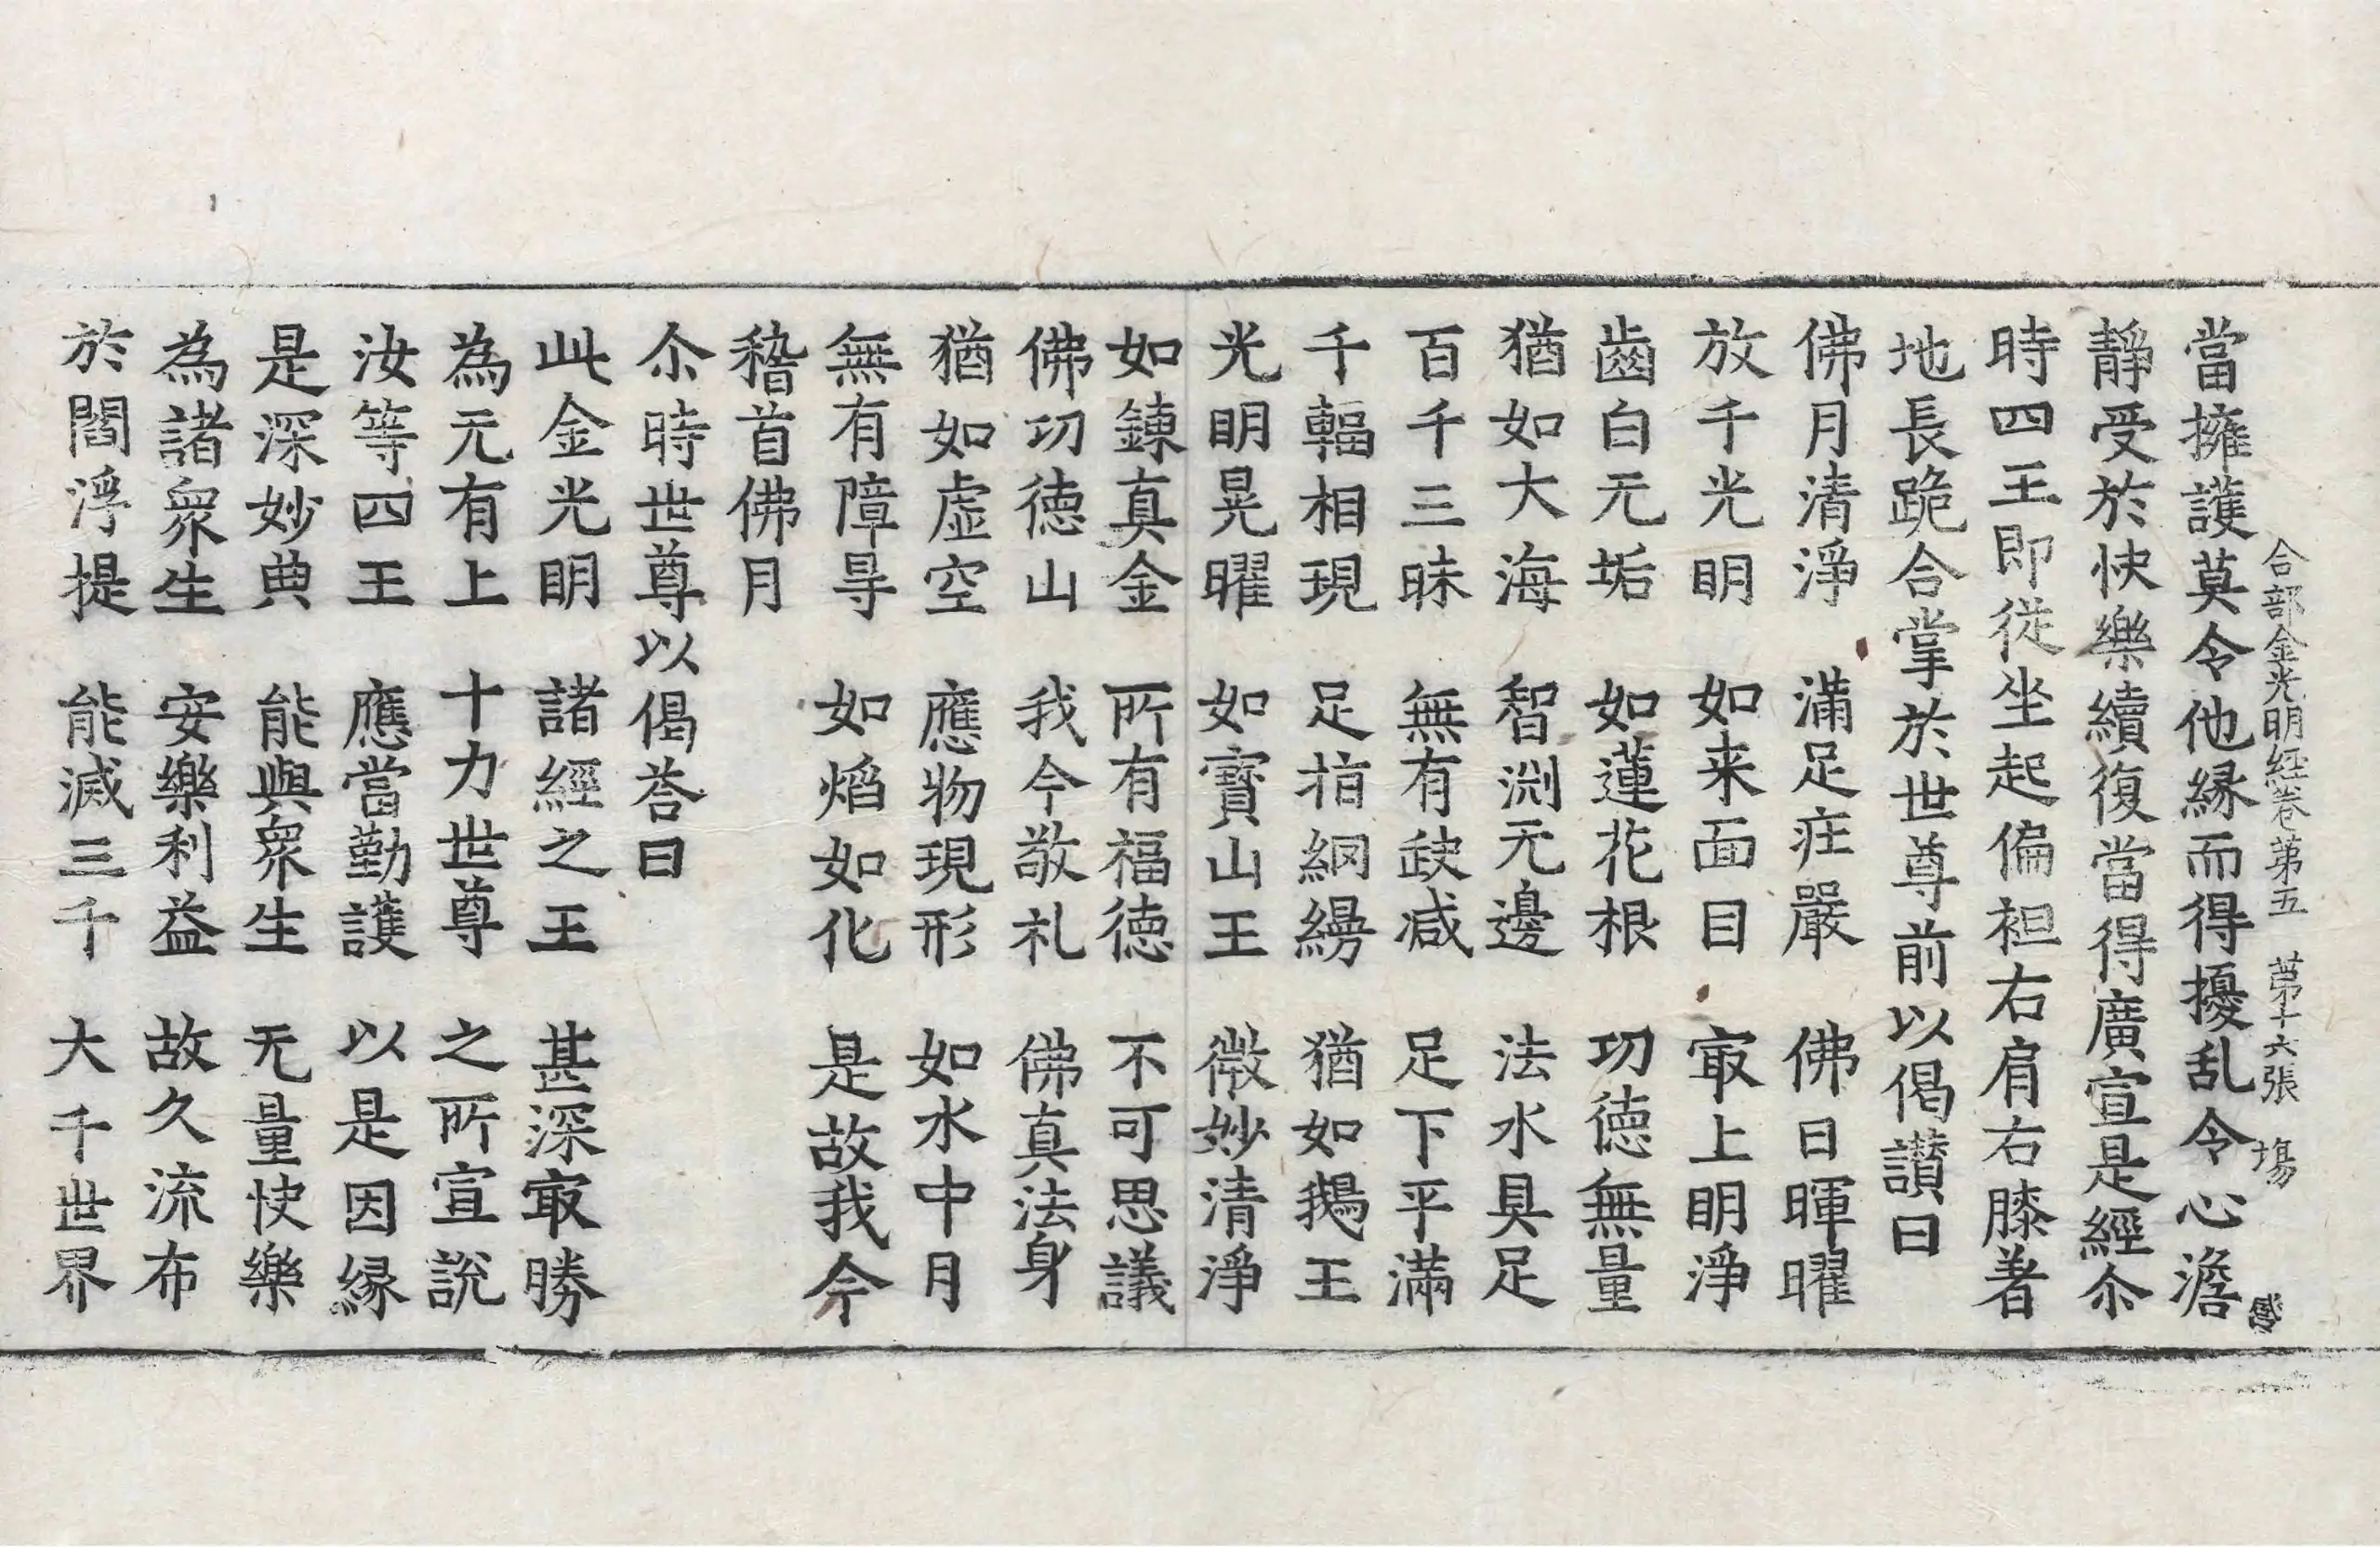 合部金光明經卷第五 第十六張 塲
當擁護莫令他縁而得擾乱令心澹
靜受於快樂續復當得廣宣是經尒
時四王即從坐起偏袒右肩右膝著
地長跪合掌於世尊前以偈讃曰
佛月清淨 滿足疰嚴 佛日暉曜
放千光明 如来面目 㝡上明淨
齒白元垢 如蓮花根 功德無量
猶如大海 智渕元邊 法水具足
百千三昧 無有缺减 足下平滿
千輻相現 足指網縵 猶如鵝王
光明晃曜 如寶山王 微妙清淨
如鍊真金 所有福德 不可思議
佛功德山 我今敬礼 佛真法身
猶如虚空 應物現形 如水中月
無有障㝵 如焰如化 是故我今
稽首佛月
尒時世尊以偈荅曰
此金光明 諸經之王 甚深㝡勝
為元有上 十力世尊 之所宣說
汝等四王 應當勤護 以是因縁
是深妙典 能與衆生 无量快樂
為諸衆生 安樂利益 故久流布
於閻浮提 能滅三千 大千世界